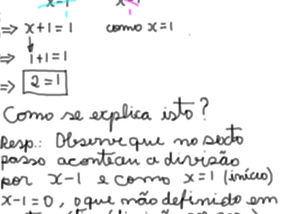 x-1
⇒ x+1=1 como x=1
⇒ 1+1=1
⇒ 2=1
Como se explica isto?
Resp.: Observe que no sexto
passo aconteceu a divisão
por x-1 e como x=1 (início)
x-1=0, o que não definido em